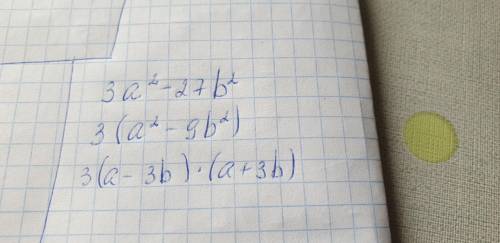 3a² - 27b²
3(a² - 9b²)
3(a - 3b) · (a + 3b)